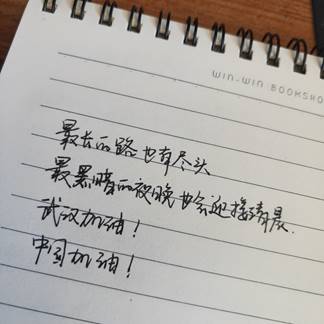 WIN-WIN BOOKSHO
最长的路也有尽头
最黑暗的夜晚也会迎接清晨.
武汉加油!
中国加油!